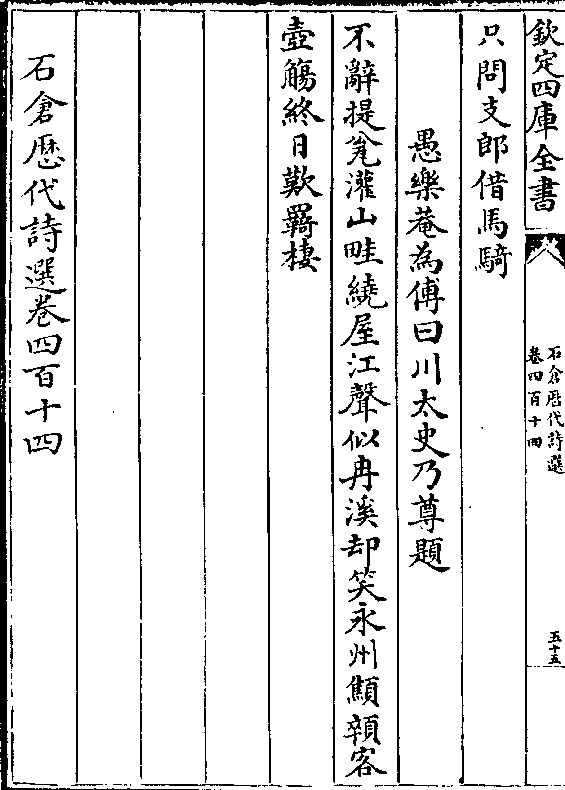 欽定四庫全書
石倉歴代詩選
卷四百十四
五十五
只問支郎借馬騎
愚樂菴為傅曰川太史乃尊題
不辭提瓮灌山畦繞屋江聲似冉溪却笑永州顦顇客
壺觴終日歎羇棲
石倉歴代詩選卷四百十四